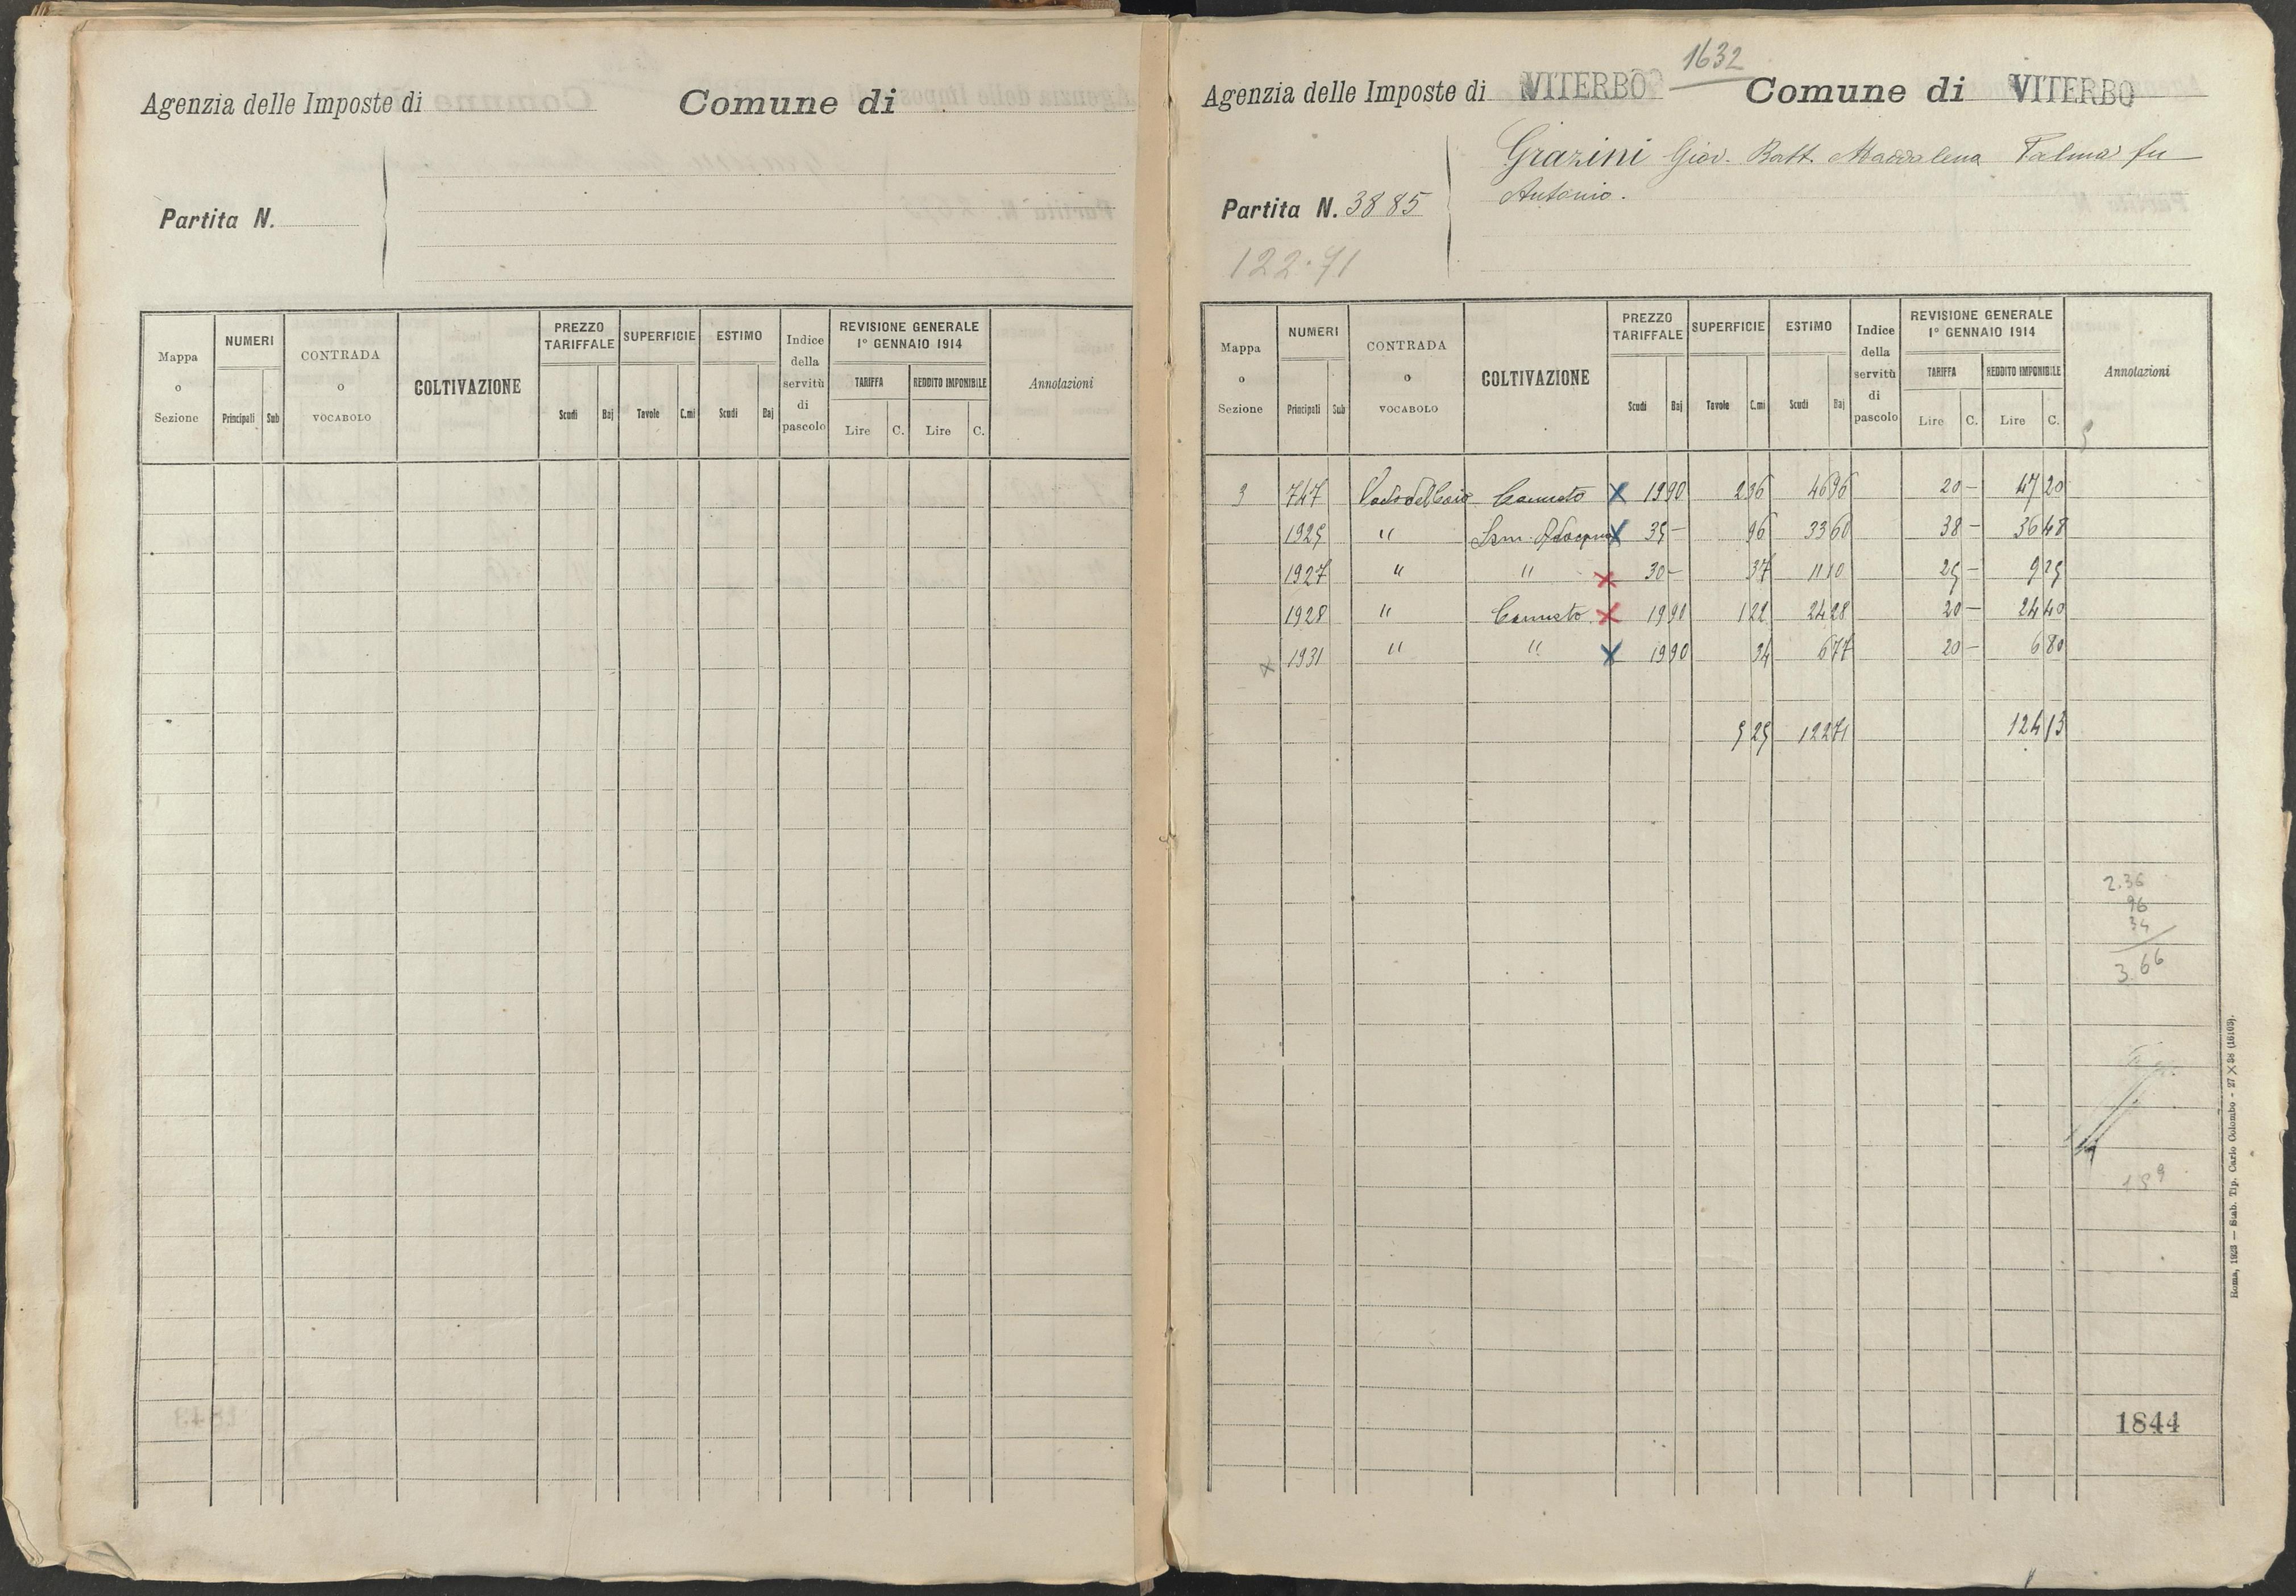 Agenzia delle Imposte di Comune di
Partita N.
Mappa o Sezione NUMERI Principali Sub CONTRADA o VOCABOLO COLTIVAZIONE PREZZO TARIFFALE Scudi Baj SUPERFICIE Tavole C.mi ESTIMO Scudi Baj Indice della servitù di pascolo REVISIONE GENERALE 1° GENNAIO 1914 TARIFFA Lire C. REDDITO IMPONIBILE Lire C. Annotazioni
1632
Agenzia delle Imposte di VITERBO Comune di VITERBO
Grazini Giov. Batt. Maddalena Palma fu
Antonio.
Partita N. 3885
122.71
Mappa o Sezione NUMERI Principali Sub CONTRADA o VOCABOLO COLTIVAZIONE PREZZO TARIFFALE Scudi Baj SUPERFICIE Tavole C.mi ESTIMO Scudi Baj Indice della servitù di pascolo REVISIONE GENERALE 1° GENNAIO 1914 TARIFFA Lire C. REDDITO IMPONIBILE Lire C. Annotazioni
3 747 Canneto x 19 90 2 36 46 96 20 — 47 20
1925 " x 35 — 96 33 60 38 — 36 48
1927 " " x 30 — 37 11 10 25 — 9 25
1928 " Canneto x 19 90 1 22 24 28 20 — 24 40
x 1931 " " x 19 90 34 6 77 20 — 6 80
5 25 122 71 124 13
2.36
96
34
3.66
1844
Roma, 1923 — Stab. Tip. Carlo Colombo - 27 X 38 (16103).